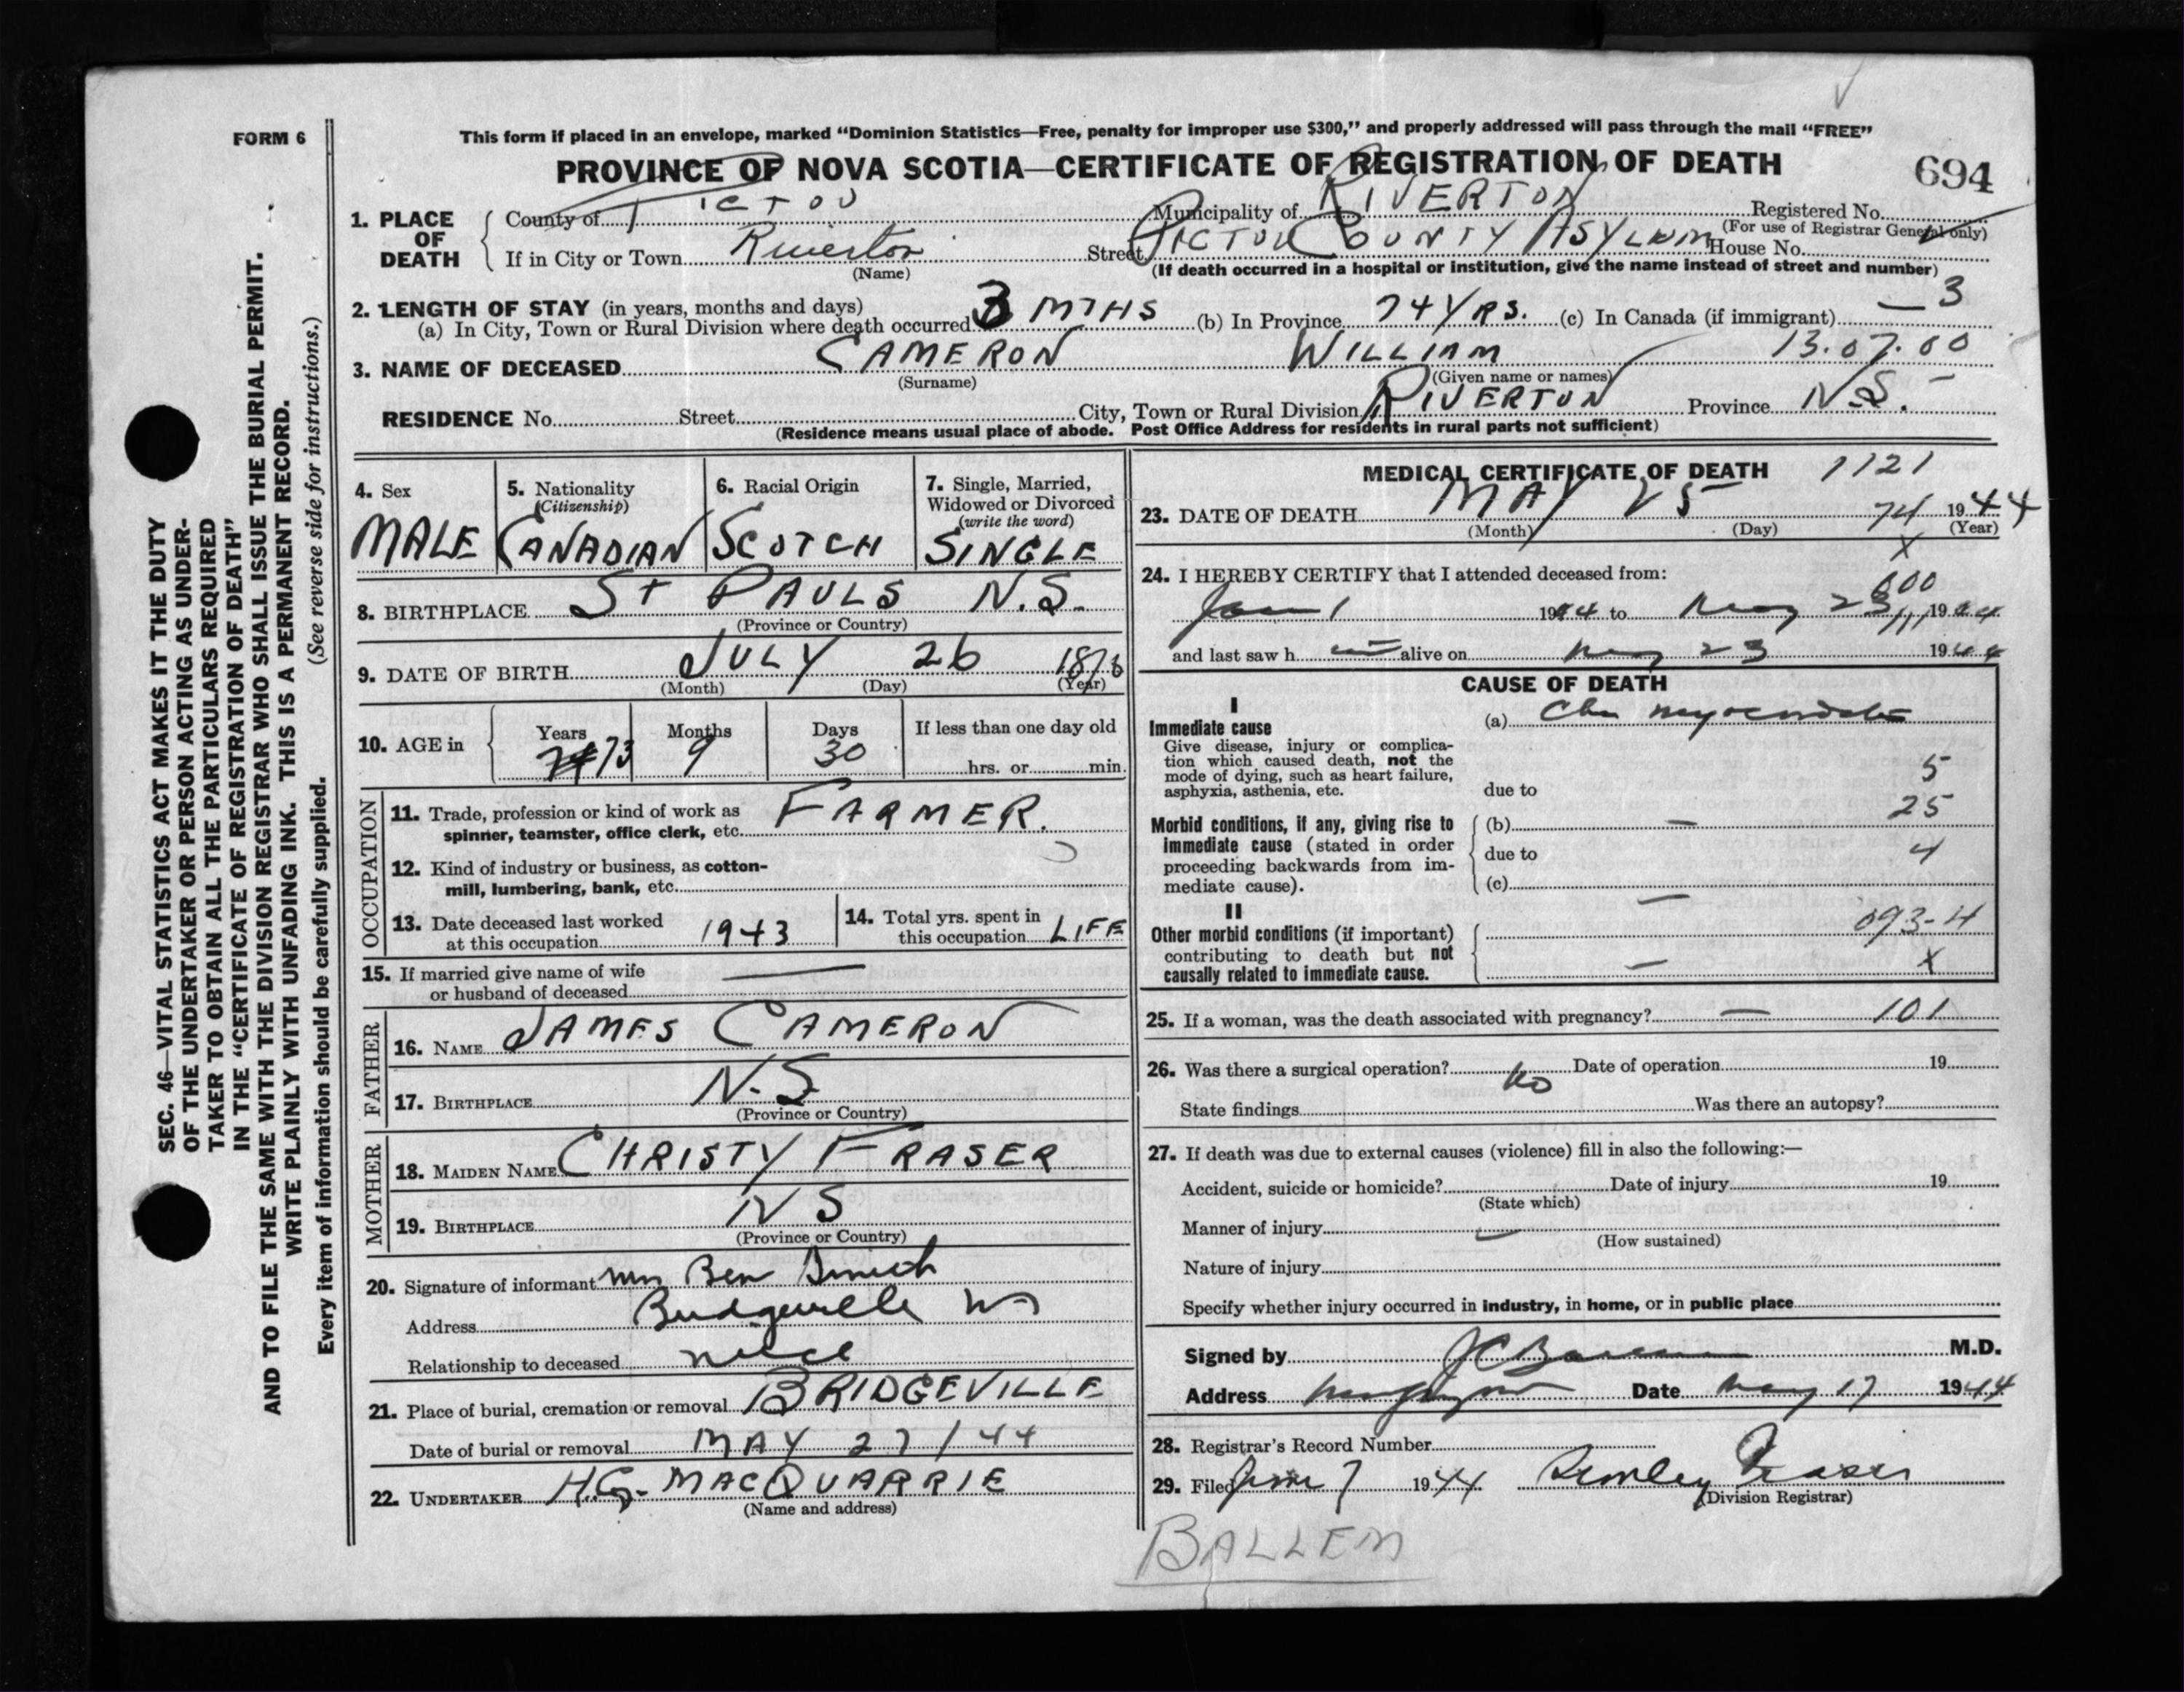 FORM 6
This form if placed in an envelope, marked "Dominion Statistics—Free, penalty for improper use $300," and properly addressed will pass through the mail "FREE"
PROVINCE OF NOVA SCOTIA—CERTIFICATE OF REGISTRATION OF DEATH
694
1. PLACE OF DEATH
County of PICTOU Municipality of RIVERTON Registered No.
(For use of Registrar General only)
If in City or Town Riverton Street PICTOU COUNTY ASYLUM House No.
(Name) (If death occurred in a hospital or institution, give the name instead of street and number)
2. LENGTH OF STAY (in years, months and days) — 3
(a) In City, Town or Rural Division where death occurred 3 MTHS (b) In Province 74 YRS. (c) In Canada (if immigrant)
3. NAME OF DECEASED CAMERON WILLIAM 13.07.00
(Surname) (Given name or names)
RESIDENCE No. Street City, Town or Rural Division RIVERTON Province N.S.
(Residence means usual place of abode. Post Office Address for residents in rural parts not sufficient)
SEC. 46—VITAL STATISTICS ACT MAKES IT THE DUTY
OF THE UNDERTAKER OR PERSON ACTING AS UNDER-
TAKER TO OBTAIN ALL THE PARTICULARS REQUIRED
IN THE "CERTIFICATE OF REGISTRATION OF DEATH"
AND TO FILE THE SAME WITH THE DIVISION REGISTRAR WHO SHALL ISSUE THE BURIAL PERMIT.
WRITE PLAINLY WITH UNFADING INK. THIS IS A PERMANENT RECORD.
Every item of information should be carefully supplied. (See reverse side for instructions.)
4. Sex MALE
5. Nationality (Citizenship) CANADIAN
6. Racial Origin SCOTCH
7. Single, Married, Widowed or Divorced (write the word) SINGLE
8. BIRTHPLACE ST PAULS N.S.
(Province or Country)
9. DATE OF BIRTH JULY 26
(Month) (Day) (Year)
10. AGE in Years 73 Months 9 Days 30 If less than one day old
hrs. or min.
OCCUPATION
11. Trade, profession or kind of work as spinner, teamster, office clerk, etc. FARMER.
12. Kind of industry or business, as cotton-mill, lumbering, bank, etc.
13. Date deceased last worked at this occupation 1943
14. Total yrs. spent in this occupation LIFE
15. If married give name of wife or husband of deceased —
FATHER
16. NAME JAMES CAMERON
17. BIRTHPLACE N.S
(Province or Country)
MOTHER
18. MAIDEN NAME CHRISTY FRASER
19. BIRTHPLACE N S
(Province or Country)
20. Signature of informant Mrs Ben
Address Bridgeville NS
Relationship to deceased niece
21. Place of burial, cremation or removal BRIDGEVILLE
Date of burial or removal MAY 27/44
22. UNDERTAKER H.G. MACQUARRIE
(Name and address)
MEDICAL CERTIFICATE OF DEATH 1121
23. DATE OF DEATH MAY 25 74 1944
(Month) (Day) (Year)
X
24. I HEREBY CERTIFY that I attended deceased from: 600
Jan 1 1944 to May 23 1944
and last saw h alive on May 23 1944
CAUSE OF DEATH
I
Immediate cause
Give disease, injury or complica-
tion which caused death, not the
mode of dying, such as heart failure,
asphyxia, asthenia, etc.
(a)
due to
5
25
Morbid conditions, if any, giving rise to
immediate cause (stated in order
proceeding backwards from im-
mediate cause).
(b) —
due to 4
(c) —
II
Other morbid conditions (if important)
contributing to death but not
causally related to immediate cause.
093-4
— X
25. If a woman, was the death associated with pregnancy? — 101
26. Was there a surgical operation? no Date of operation 19
State findings Was there an autopsy?
27. If death was due to external causes (violence) fill in also the following:—
Accident, suicide or homicide? Date of injury 19
(State which)
Manner of injury
(How sustained)
Nature of injury
Specify whether injury occurred in industry, in home, or in public place
Signed by M.D.
Address Date May 17 1944
28. Registrar's Record Number
29. Filed June 7 1944 Fraser
(Division Registrar)
BALLEM